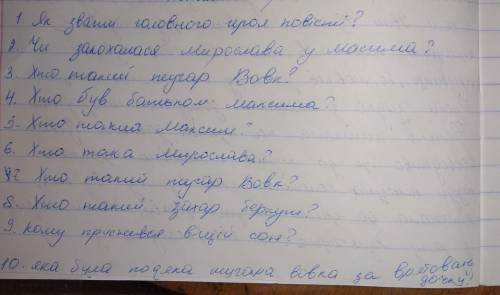 1. Як звати головного героя повісті?
2. Чи закохалася Мирослава у Масима?
3 Хто такий тугар Вовк?
4. Хто був батьком Максима?
5. Хто такий Максим?
6. Хто така Мирослава?
7 Хто такий тугар Вовк?
8. Хто такий захар беркут?
9. Кому приснився віщій сон?
10. яка була подяка тугара вовка за врятован дочку?